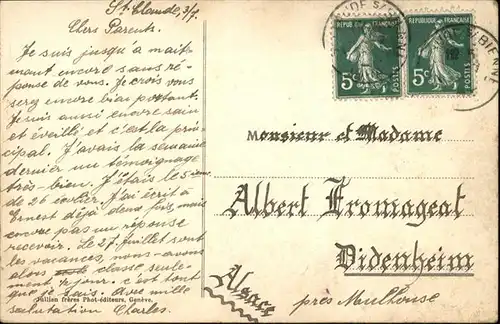 St. Claude, 3/7.
Chers Parents.
Je suis jusqu'a maît-
nant encore sans ré-
ponse de vous. Je crois vous
serez encore bien portant.
Je suis aussi encore sain
et éveillé et c'est la prin-
cipal. J'avais la semaine
dernier un témoignage
très-bien. J'étais le 5ieme
de 26 écolier. J'ai écrit à
Ernest déjà deux fois, mais
encore pas un réponse
recevoir. Le 27 Juillet sont
les vacances, nous-avons
alors classe seule-
ment jour. c'est tout
que je sais. Avec mille
salutation Charles.
Jullien frères Phot-éditeurs, Genève.
RÉPUBLIQUE FRANÇAISE
5c POSTES
RÉPUBLIQUE FRANÇAISE
5c POSTES
Monsieur et Madame
Albert Fromageat
Didenheim
Alsace
près Mulhouse